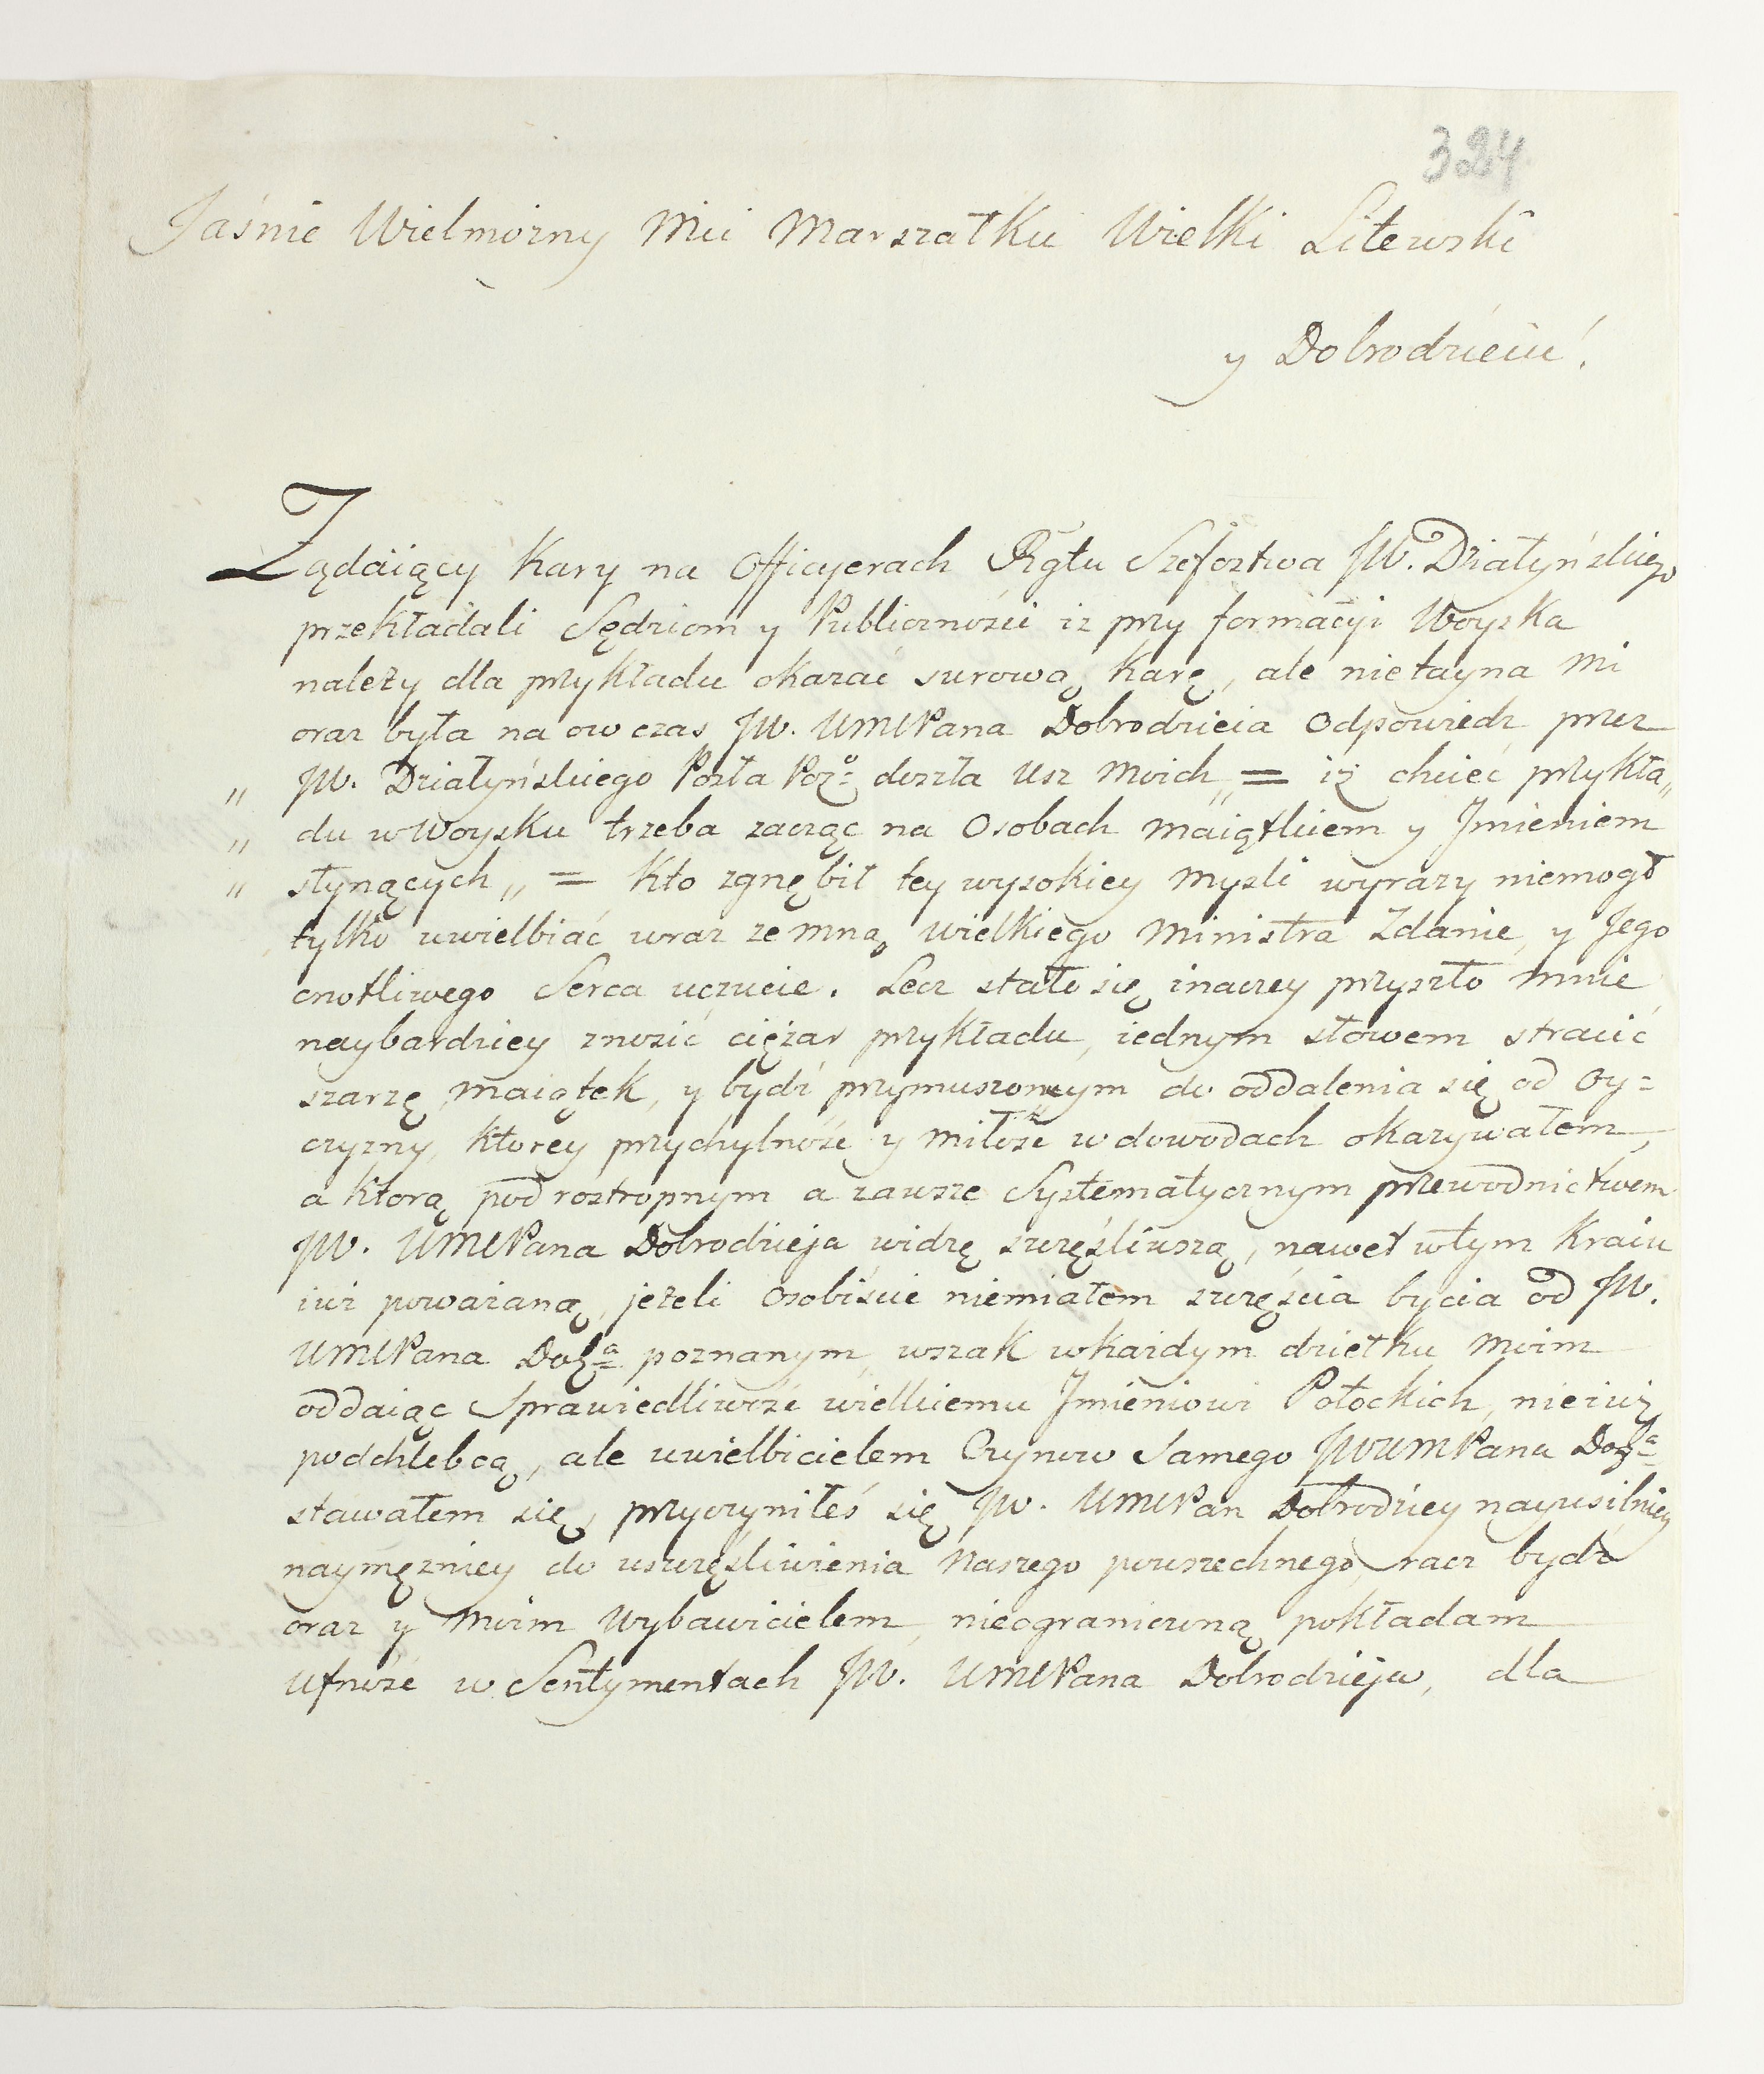 324
Jaśnie Wielmożny Mci Marszałku Wielki Litewski
y Dobrodzieiu!
Żądaiący Kary na Officyerach Rgtu Szefostwa JW. Działyńskiego
przekładali Sędziom y Publicznosci iz przy formacyi Woyska
należy dla przykładu okazać surową karę, ale nie tayna mi
oraz była na ow czas JW. WMCPana Dobrodzieia Odpowiedz przez
„ JW. Działyńskiego Posła Pozo: doszła Usz moich „ = iż chcieć przykła„
„ du w Woysku trzeba zacząc na Osobach maiątkiem y Jmieniem
„ słynących „ = Kto zgnębił tey wysokiey mysli wyrazy niemogł
tylko uwielbiać wraz ze mną wielkiego Ministra Zdanie, y Jego
cnotliwego Serca uczucie. Lecz stało się inaczey przyszło mnie
naybardziey znosić ciężar przykładu, iednym słowem stracić
szarzę, maiątek, y bydź przymuszonym do oddalenia się od Oy=
czyzny, ktorey przychylność y miłość w dowodach okazywałem,
a ktorą pod roztropnym a zawsze Systematycznym przewodnictwem
JW. WMCPana Dobrodzieja widzę szczęśliwszą, nawet w tym Kraiu
iuż poważaną, jeżeli osobiście niemiałem szczęścia bycia od JW.
WMCPana Doba: poznanym, wszak w każdym dziełku moim
oddaiąc Sprawiedliwość wielkiemu Jmieniowi Potockich, nie iuż
podchlebcą, ale uwielbicielem Czynow Samego JWWMPana Doba:
stawałem się, przyczyniłeś się JW. WMCPan Dobrodziey nayusilniey
naymężniey do uszczęśliwienia naszego powszechnego, racz bydź
oraz y moim Wybawicielem, nieograniczoną pokładam
ufność w Sentymentach JW. WMCPana Dobrodzieja, dla